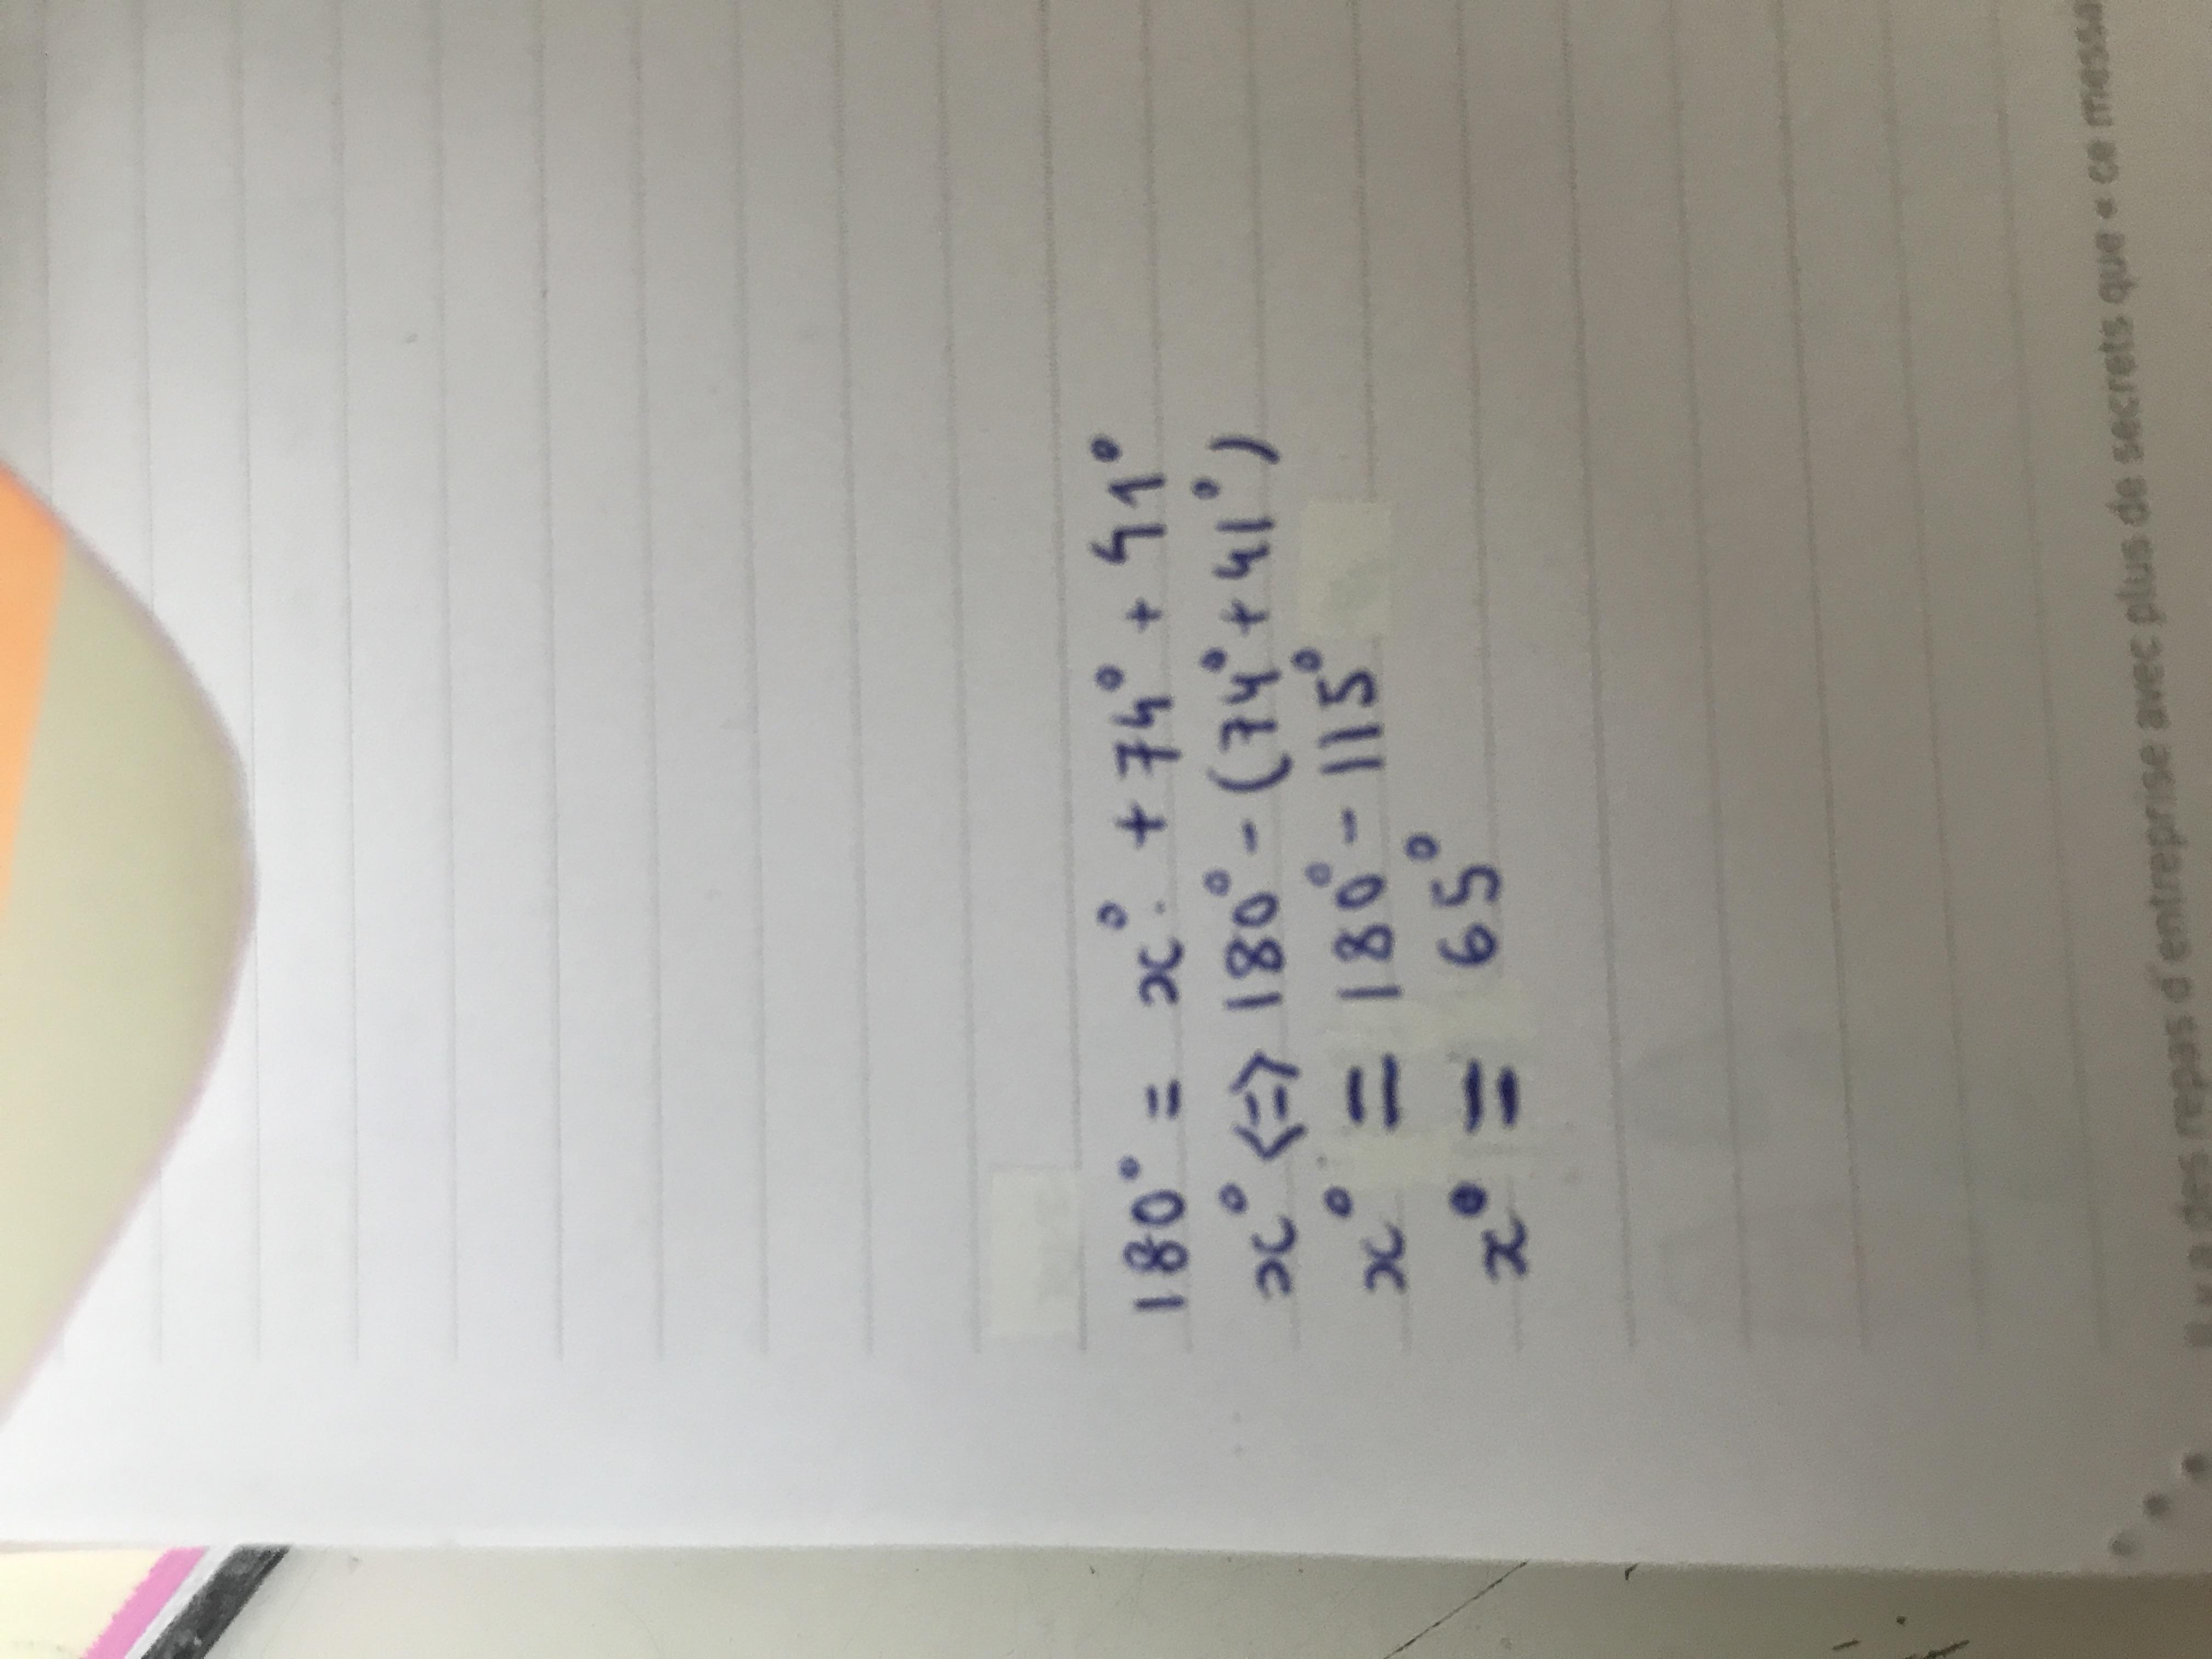 180° = x° + 74° + 41°
x° <=> 180° - (74° + 41°)
x° = 180° - 115°
x° = 65°
des repas d'entreprise avec plus de secrets que « ce messa